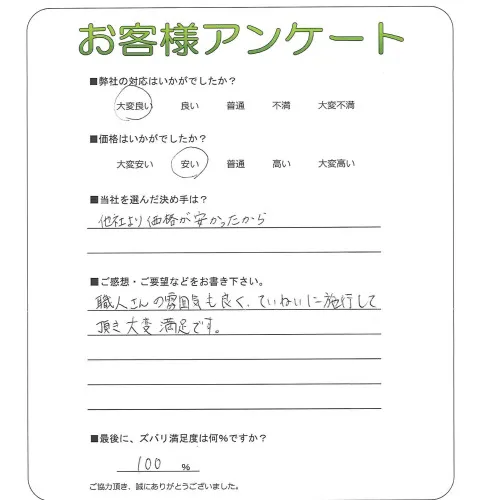 お客様アンケート
■弊社の対応はいかがでしたか？
大変良い 良い 普通 不満 大変不満
■価格はいかがでしたか？
大変安い 安い 普通 高い 大変高い
■当社を選んだ決め手は？
他社より価格が安かったから
■ご感想・ご要望などをお書き下さい。
職人さんの雰囲気も良く、ていねいに施行して
頂き大変満足です。
■最後に、ズバリ満足度は何%ですか？
100 %
ご協力頂き、誠にありがとうございました。